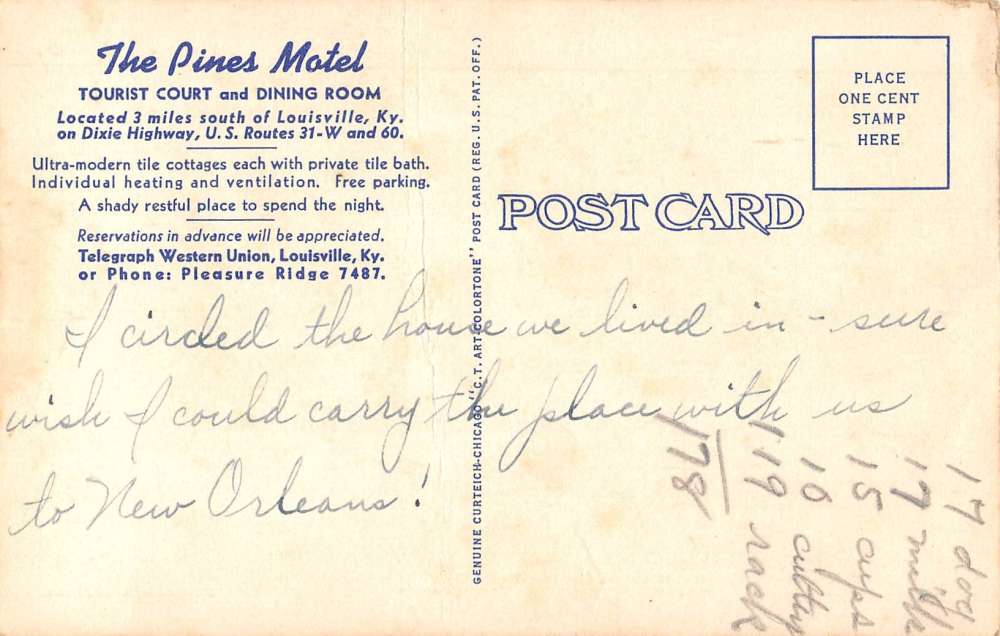 The Pines Motel
TOURIST COURT and DINING ROOM
Located 3 miles south of Louisville, Ky.
on Dixie Highway, U.S. Routes 31-W and 60.
Ultra-modern tile cottages each with private tile bath.
Individual heating and ventilation. Free parking.
A shady restful place to spend the night.
Reservations in advance will be appreciated.
Telegraph Western Union, Louisville, Ky.
or Phone: Pleasure Ridge 7487.
GENUINE CURTEICH-CHICAGO "C.T. ART-COLORTONE" POST CARD (REG. U.S. PAT. OFF.)
POST CARD
PLACE
ONE CENT
STAMP
HERE
I circled the house we lived in - sure
wish I could carry the place with us
to New Orleans!
17 dog
17 milk
15 cups
10
119 rack
178